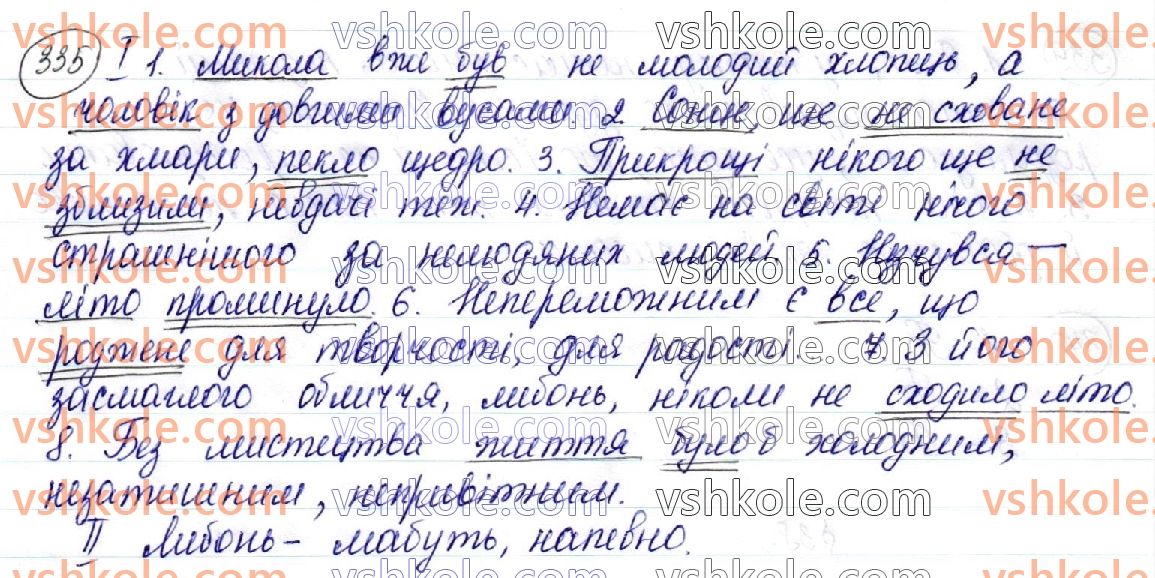 335 І 1. Микола вже був не молодий хлопець, а
чоловік з довгими вусами 2 Сонце, ще не сховане
за хмари, пекло щедро. 3. Прикрощі нікого ще не
зблизили, невдачі теж. 4. Немає на світі нічого
страшнішого за нелюдяних людей. 5. Незчувся —
літо проминуло. 6. Непереможним є все, що
роджене для творчості, для радості. 7. З його
засмаглого обличчя, либонь, ніколи не сходило літо.
8. Без мистецтва життя було б холодним,
незатишним, непривітним.
ІІ Либонь – мабуть, напевно.
vshkole.com